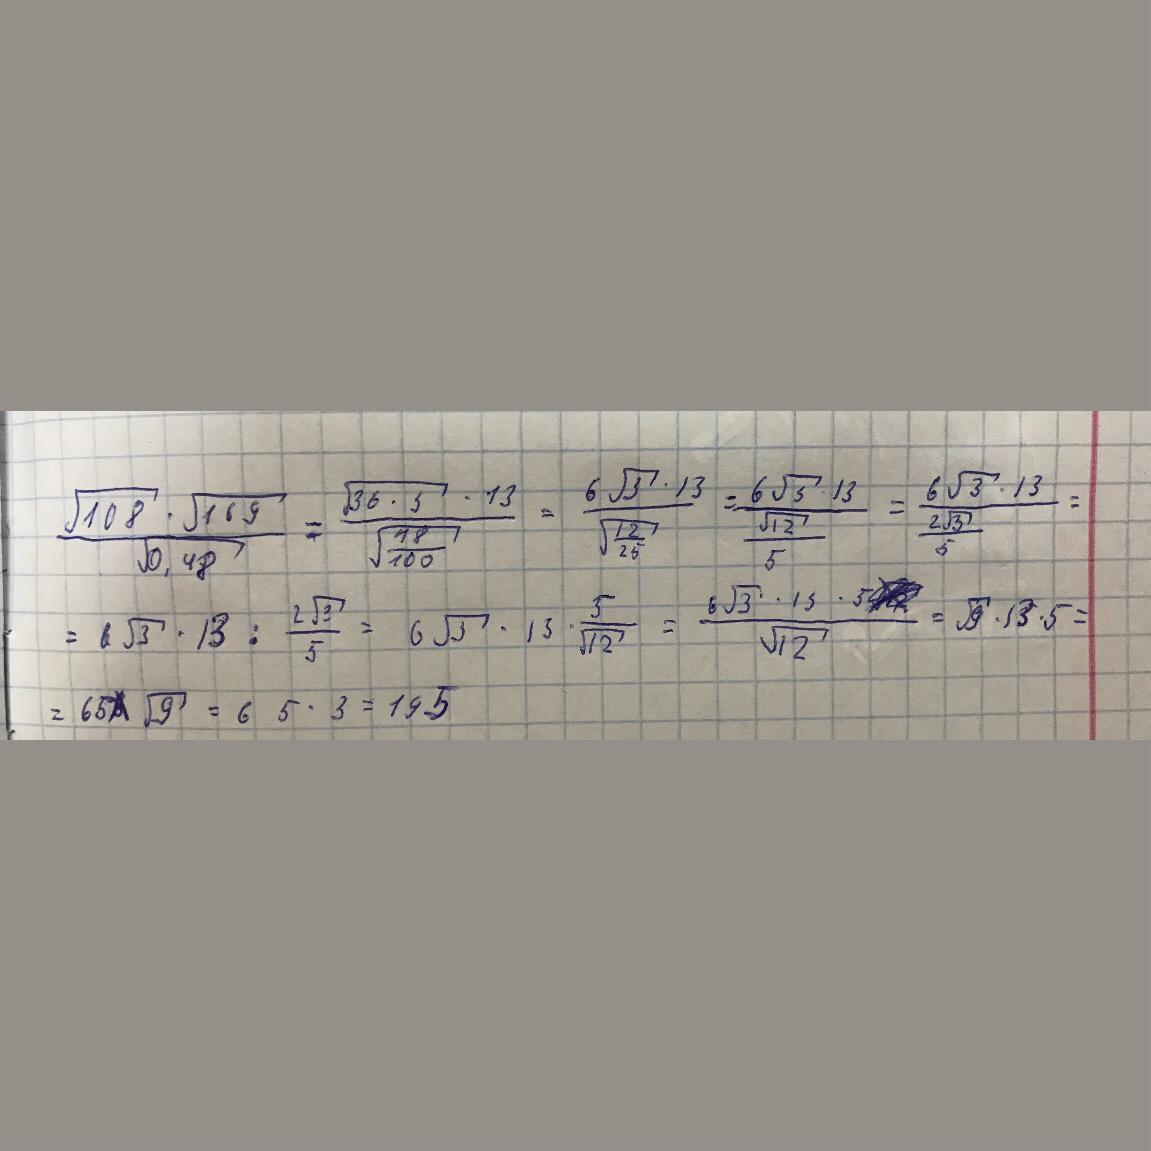 √108 · √169 / √0,48 = √36 · 3 · 13 / √48/100 = 6√3 · 13 / √12/25 = 6√3 · 13 / √12/5 = 6√3 · 13 / 2√3/5 =
= 6√3 · 13 : 2√3/5 = 6√3 · 13 · 5/√12 = 6√3 · 13 · 5 / √12 = √9 · 13 · 5 =
= 65 √9 = 65 · 3 = 195